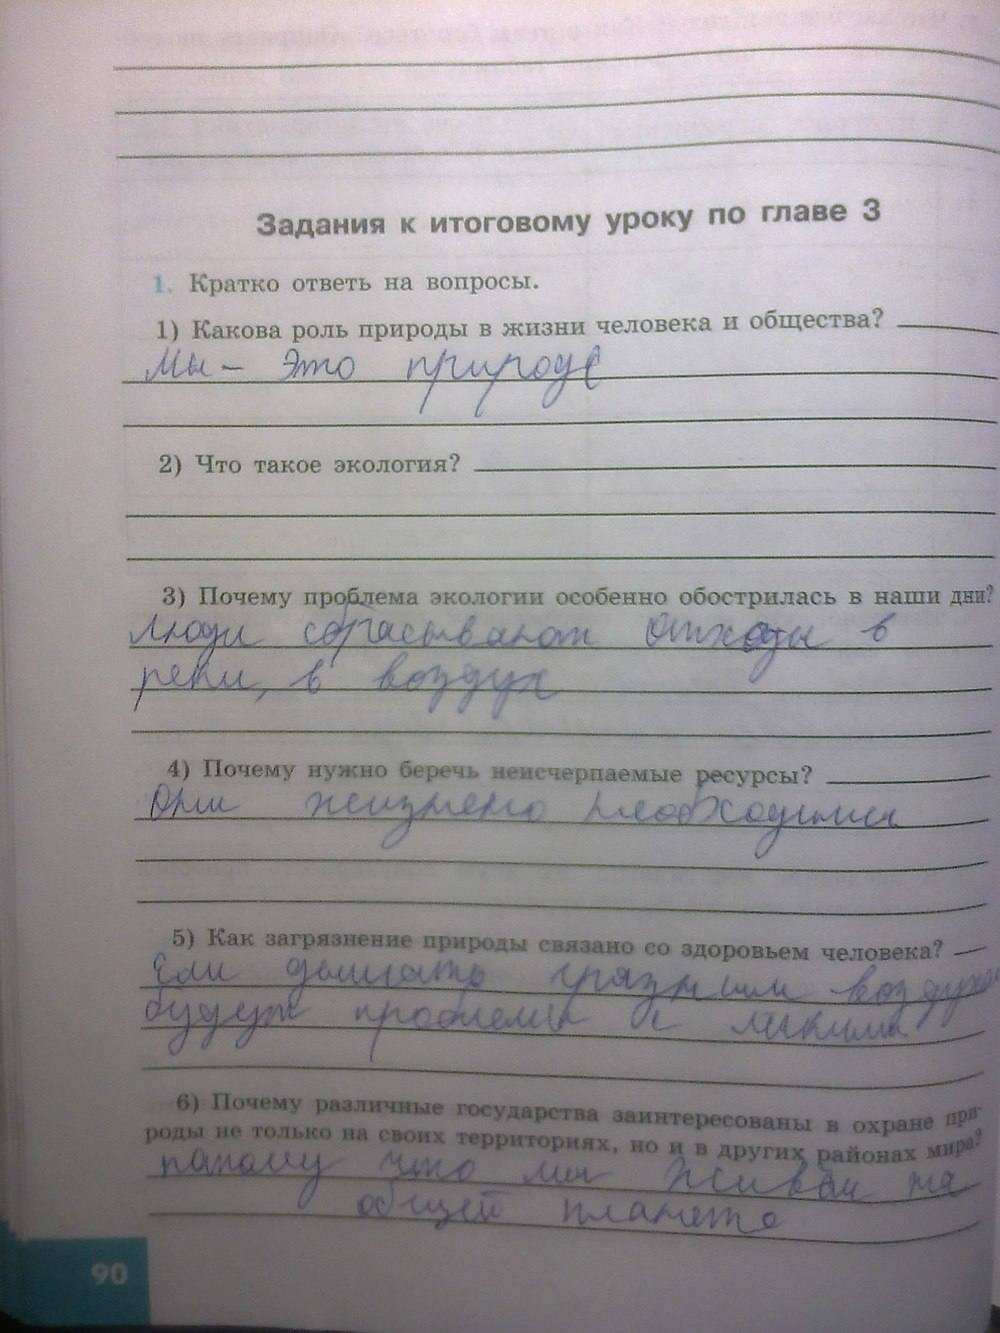 Задания к итоговому уроку по главе 3
1. Кратко ответь на вопросы.
1) Какова роль природы в жизни человека и общества?
Мы - это природа
2) Что такое экология?
3) Почему проблема экологии особенно обострилась в наши дни?
Люди сбрасывают отходы в
реки, в воздух
4) Почему нужно беречь неисчерпаемые ресурсы?
Они жизнено необходимы
5) Как загрязнение природы связано со здоровьем человека?
Если дышать грязным воздухом
будут проблемы с лёкими
6) Почему различные государства заинтересованы в охране при-
роды не только на своих территориях, но и в других районах мира?
патому что мы живём на
общей планете
90